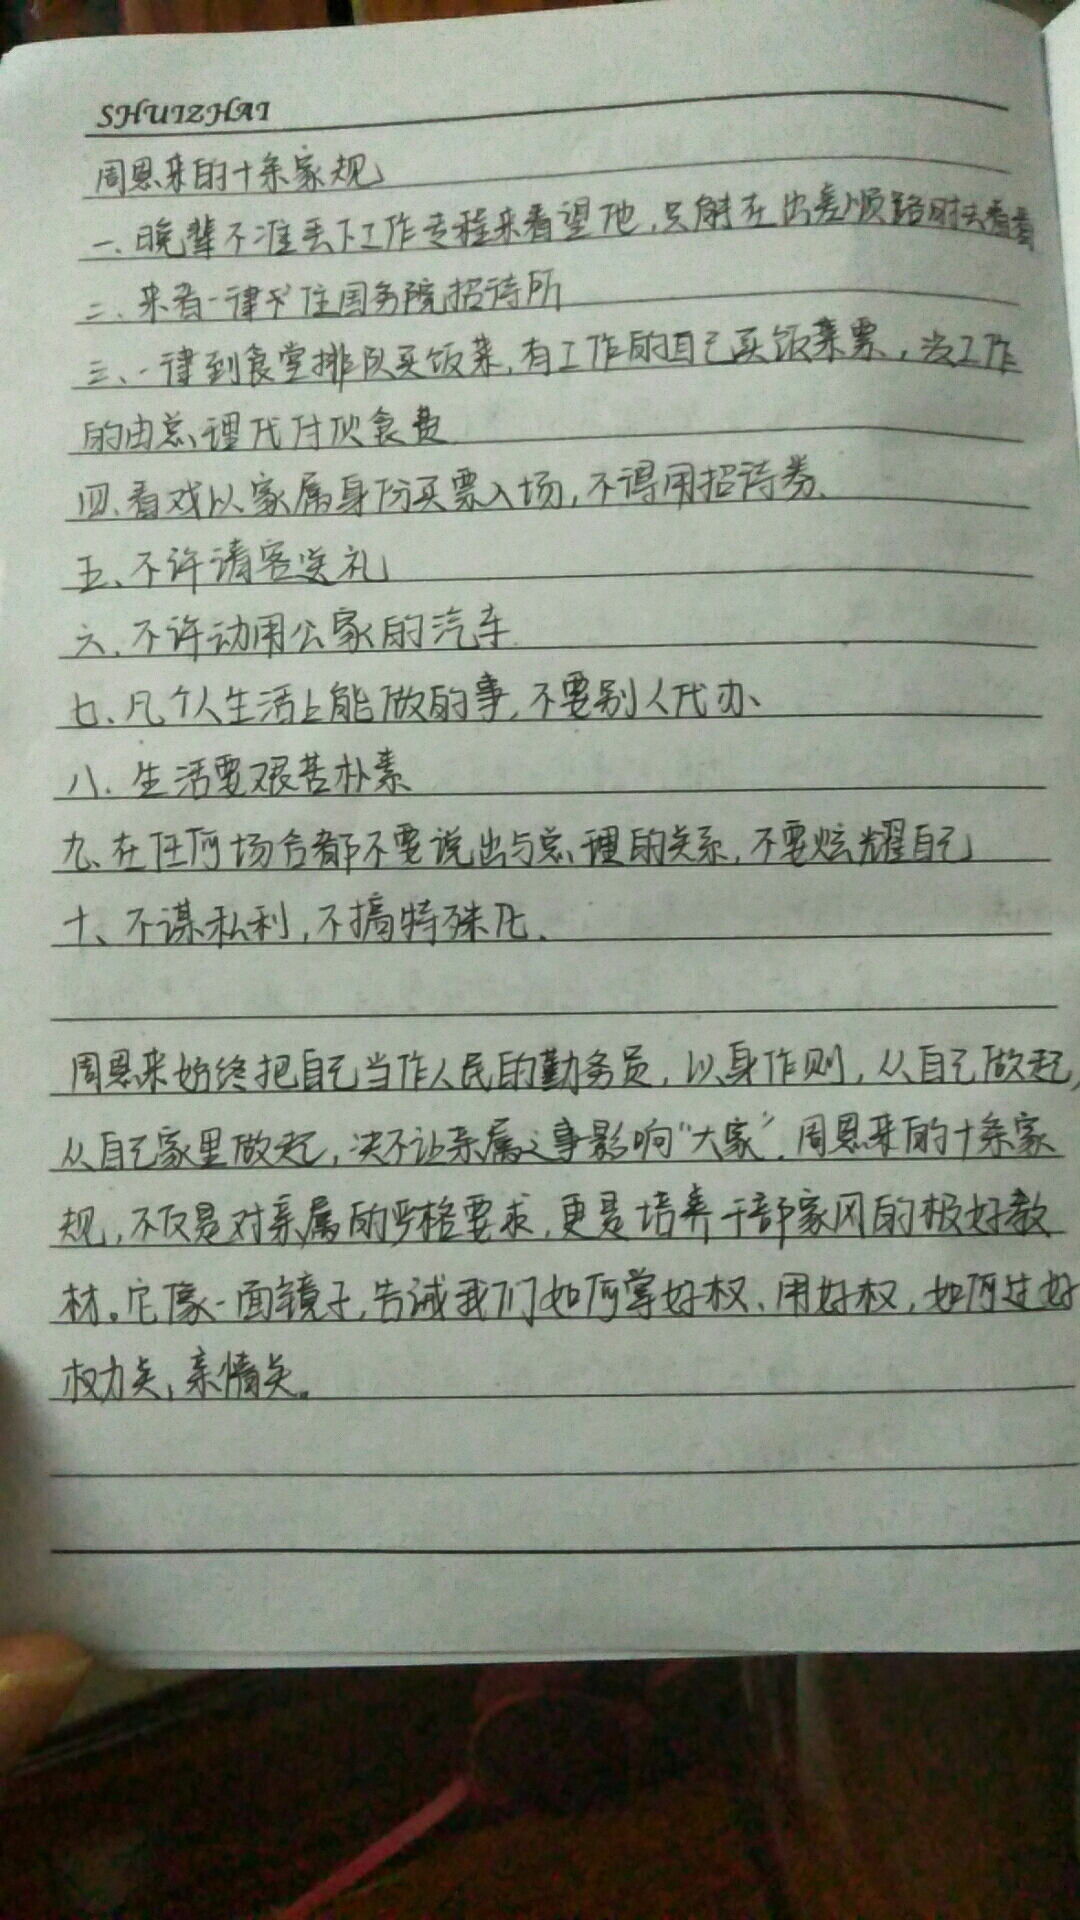 SHUIZHAI
周恩来的十条家规
一、晚辈不准丢下工作专程来看望他,只能在出差顺路时去看看
二、来者一律住国务院招待所
三、一律到食堂排队买饭菜,有工作的自己买饭菜票,没工作
的由总理代付伙食费
四、看戏以家属身份买票入场,不得用招待券、
五、不许请客送礼
六、不许动用公家的汽车
七、凡个人生活上能做的事,不要别人代办、
八、生活要艰苦朴素
九、在任何场合都不要说出与总理的关系,不要炫耀自己
十、不谋私利,不搞特殊化、
周恩来始终把自己当作人民的勤务员,以身作则,从自己做起,
从自己家里做起,决不让亲属之事影响“大家”.周恩来的十条家
规,不仅是对亲属的严格要求,更是培养干部家风的极好教
材。它像一面镜子,告诫我们如何掌好权、用好权,如何过好
权力关,亲情关。